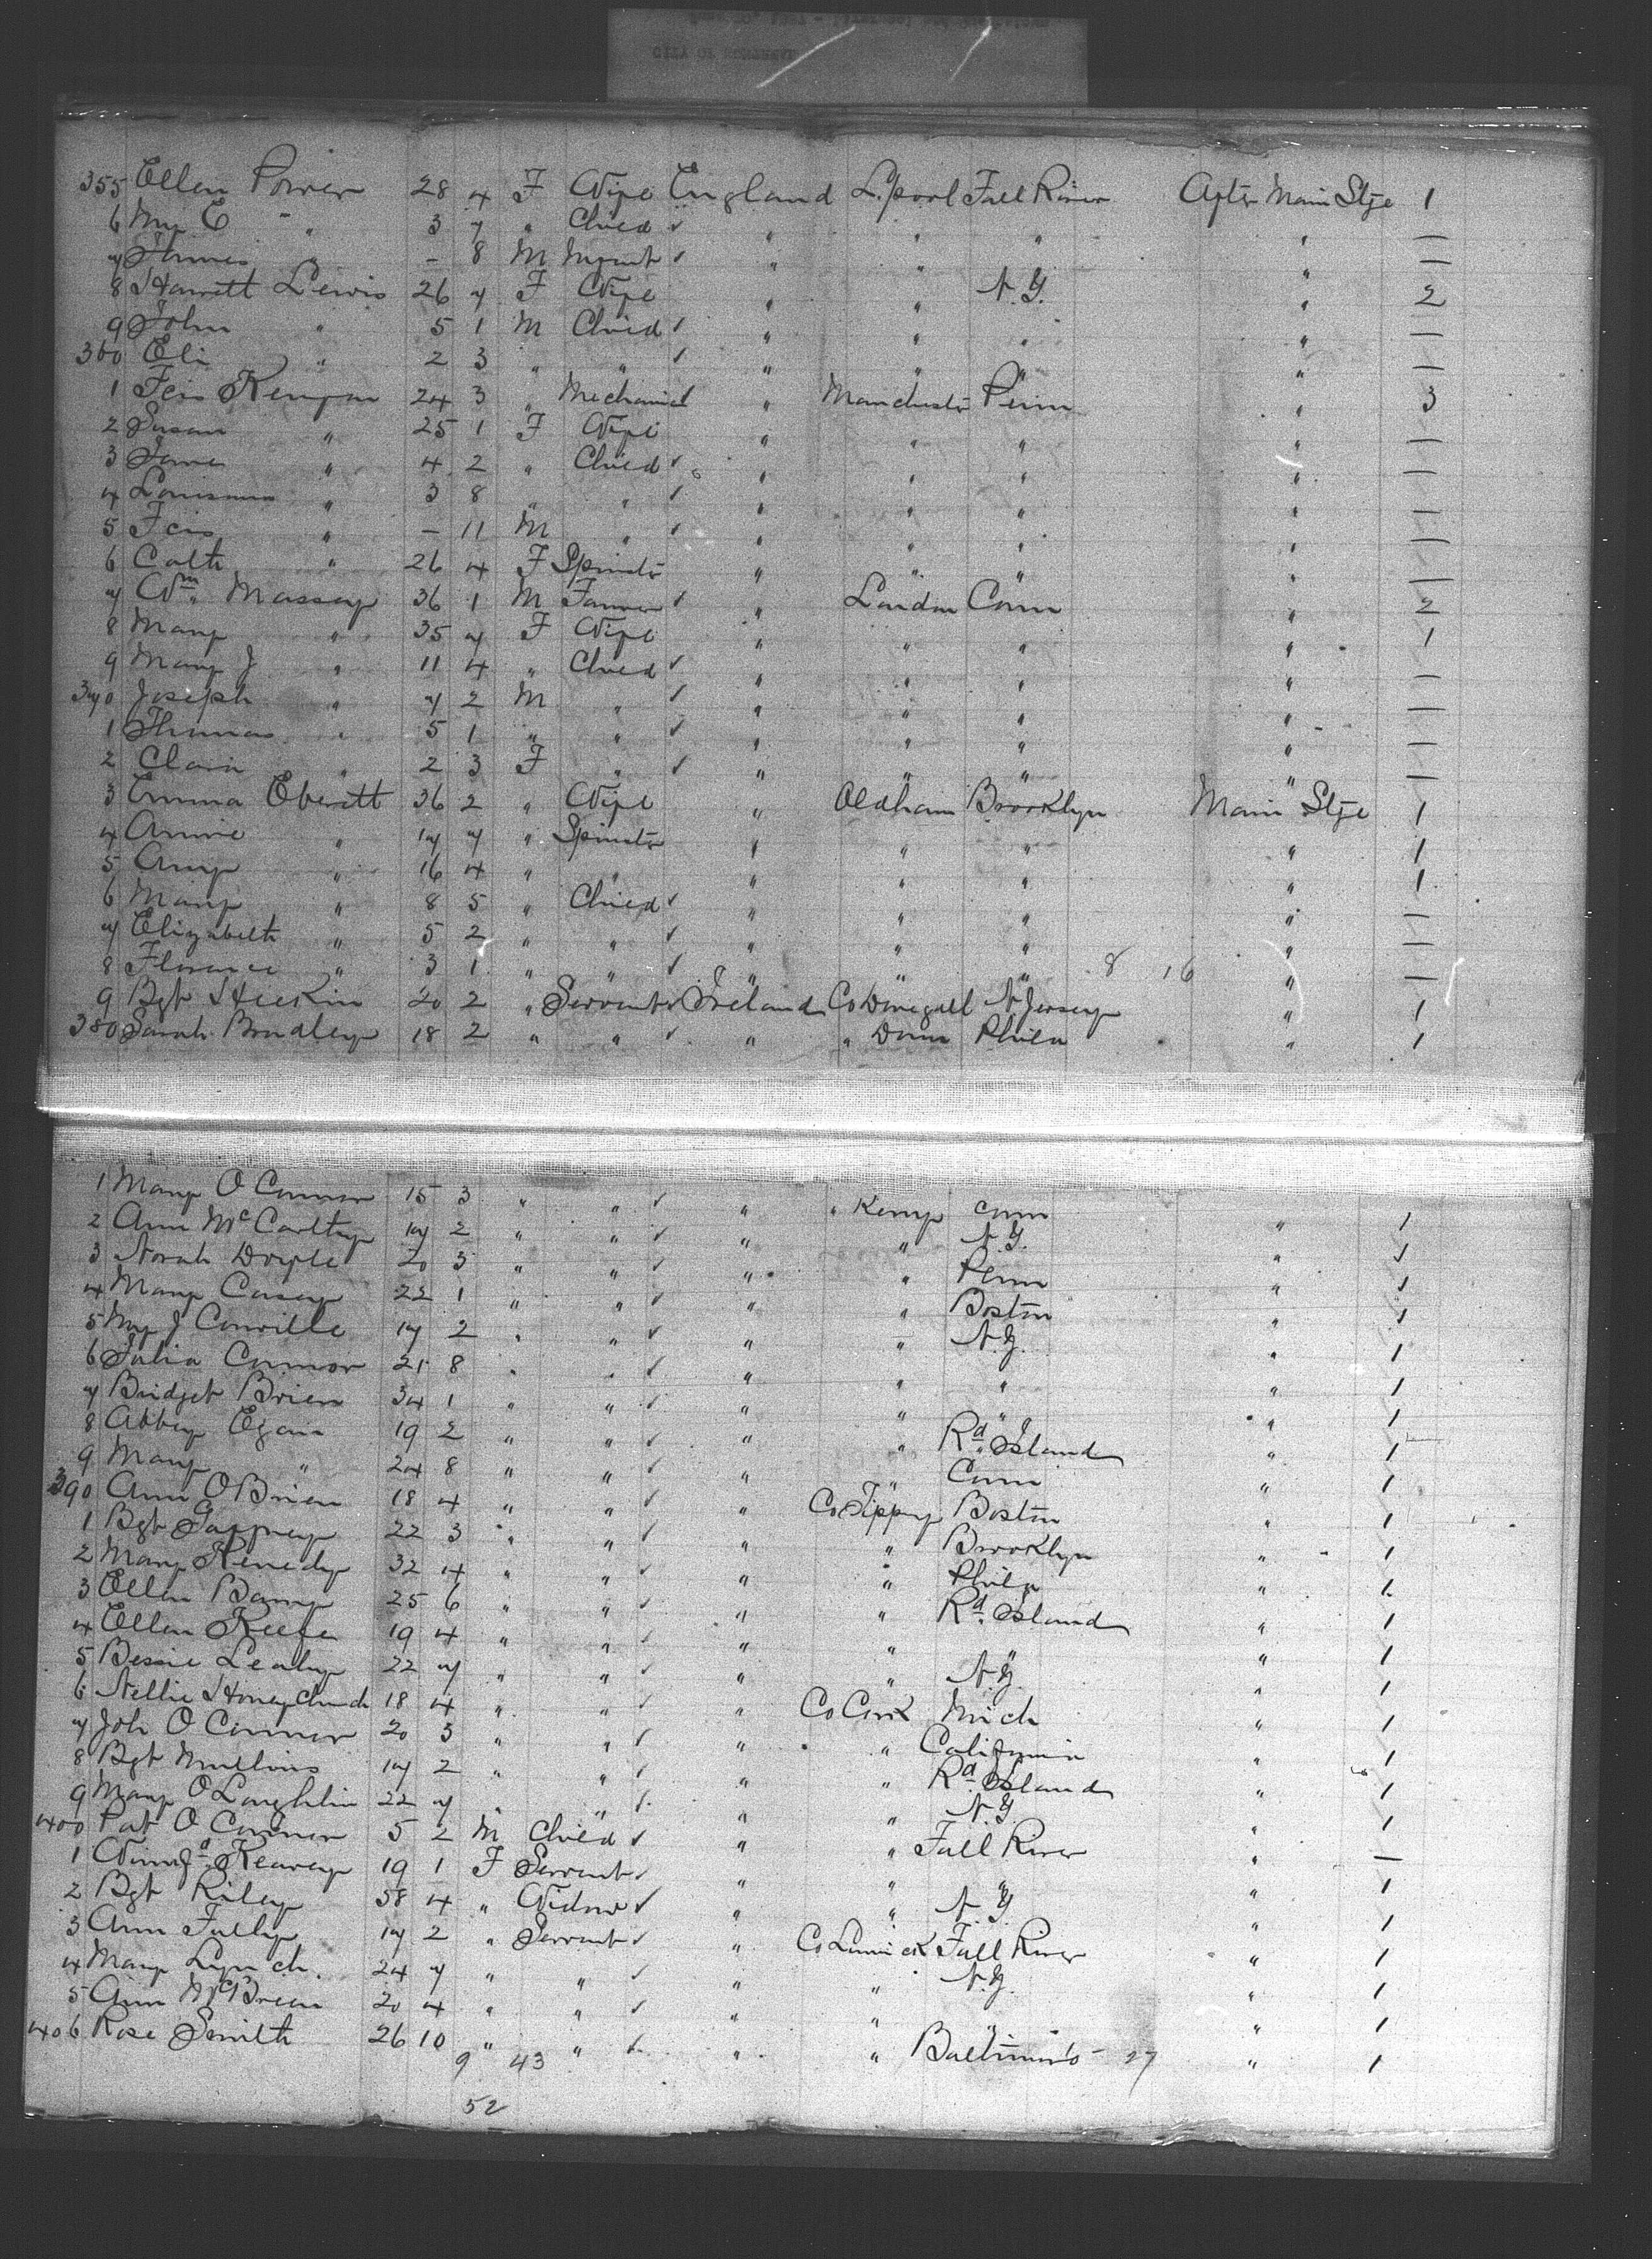 355 Ellen Power 28 4 F Wife England L.pool Fall River After Main Stge 1
6 My E " 3 7 " Child ✓ " " " " —
7 James " – 8 M Infant ✓ " " " —
8 Harriett Lewis 26 7 F Wife " " N.Y. " 2
9 John " 5 1 M Child ✓ " " " " —
360 Eli " 2 3 " " ✓ " " " " —
1 Fcis Kenyon 24 3 " Mechanic ✓ " Manchestr Penn " 3
2 Susan " 25 1 F Wife " " " " —
3 Jane " 4 2 " Child ✓ " " " " —
4 " 3 8 " " ✓ " " " " —
5 Fcis " – 11 M " ✓ " " " " —
6 Cath " 26 4 F Spinstr " " " " —
7 Wm Massey 36 1 M Farmer ✓ " London Conn " 2
8 Mary " 35 7 F Wife " " " " 1
9 Mary J " 11 4 " Child ✓ " " " " —
370 Joseph " 7 2 M " ✓ " " " " —
1 Thomas " 5 1 " " ✓ " " " " —
2 Clara " 2 3 F " ✓ " " " " —
3 Emma Everitt 36 2 " Wife " Oldham Brooklyn Main Stge 1
4 Annie " 17 7 " Spinstr " " " " 1
5 Amy " 16 4 " " " " " " 1
6 Mary " 8 5 " Child ✓ " " " " —
7 Elizabeth " 5 2 " " ✓ " " " " —
8 Florence " 3 1 " " ✓ " " " 8 16 " —
9 Bgt 20 2 " Servant ✓ Ireland Co Donegall N Jersey " 1
380 Sarah Bradley 18 2 " " ✓ " " Down Phila " 1
1 Mary O Connor 15 3 " " ✓ " " Kerry Conn " 1
2 Ann McCarthy 17 2 " " ✓ " " N.Y. " 1
3 Norah Doyle 20 3 " " ✓ " " Penn " 1
4 Mary Casey 22 1 " " ✓ " " Boston " 1
5 My J Conville 17 2 " " ✓ " " N.Y. " 1
6 Julia Connor 21 8 " " ✓ " " " " 1
7 Bridget Brien 34 1 " " ✓ " " " " 1
8 Abbey Egan 19 2 " " ✓ " " Rd Island " 1
9 Mary " 24 8 " " ✓ " " Conn " 1
390 Ann OBrien 18 4 " " ✓ " Co Tippy Boston " 1
1 Bgt Gaffney 22 3 " " ✓ " " Brooklyn " 1
2 Mary Kenedy 32 4 " " ✓ " " Phila " 1
3 Ellen 25 6 " " ✓ " " Rd Island " 1
4 Ellen Keefe 19 4 " " ✓ " " " " 1
5 Bessie Leahy 22 7 " " ✓ " " N.Y. " 1
6 Nellie Honeychurch 18 4 " " ✓ " Co Cork Mich " 1
7 Joh O Connor 20 3 " " ✓ " " California " 1
8 Bgt Mullins 17 2 " " ✓ " " Rd Island " 1
9 Mary O Loughlin 22 7 " " ✓ " " N.Y. " 1
400 Pat O Connor 5 2 M Child ✓ " " Fall River " —
1 Winifd Kearney 19 1 F Servant ✓ " " " " 1
2 Bgt Riley 58 4 " Widow ✓ " " N.Y. " 1
3 Ann 17 2 " Servant ✓ " Co Limrick Fall River " 1
4 Mary Lynch 24 7 " " ✓ " " N.Y. " 1
5 Ann 20 4 " " ✓ " " " " 1
406 Rose Smith 26 10 " " ✓ " " Baltimore 27 " 1
9 43
52